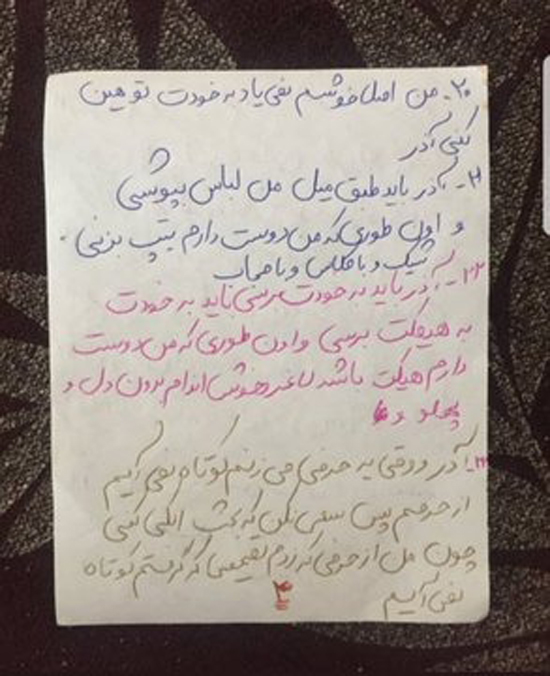 ۲۰- من اصلا خوشم نمی یاد به خودت توهین
کنی آذر
۲۱- آذر باید طبق میل من لباس بپوشی
و اون طوری که من دوست دارم تیپ بزنی.
شیک و با کلاس و با حجاب
۲۲- آذر باید به خودت برسی باید به خودت
به هیکلت برسی و اون طوری که من دوست
دارم هیکلت باشد لاغر خوش اندام بدون دل و
پهلو و
آذر وقتی یه حرفی می زنم کوتاه نمی آیم
از حرفم پس سعی نکن که بحث الکی کنی
چون من از حرفی که زدم تصمیمی که گرفتم کوتاه
نمی آیم
۴